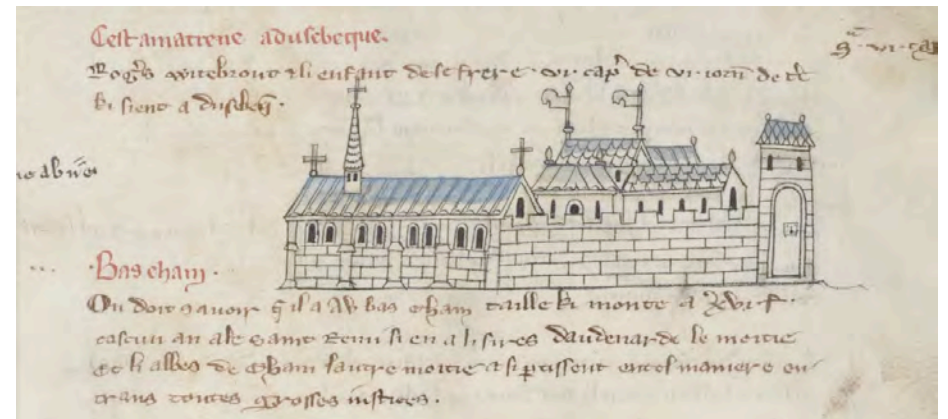 Cest amatrene adusebecque.
Rog's Witebrout & li enfant de se frere . vi . cap' de vi . iorn' de t're
ki sient a dusbeq' .
. Bas eham .
On doit sauoir q' il a Au bas eham taille ki monte a
cascun an ale saint Remi si en a li sires daudenarde le moitie
Et li abbes de Eham lautre moitie & si partissent en tel maniere en
traus toutes grosses iustices .